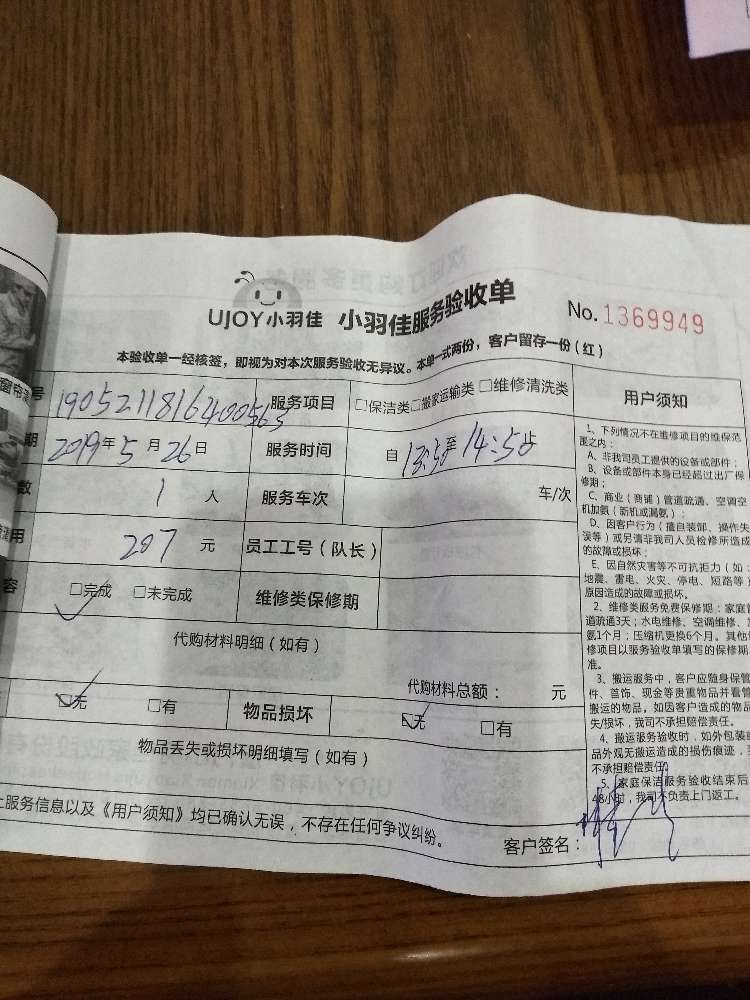 UJOY小羽佳 小羽佳服务验收单
No.1369949
本验收单一经核签，即视为对本次服务验收无异议。本单一式两份，客户留存一份(红)
号 1905211816400563 服务项目 □保洁类□搬家运输类 □维修清洗类
期 2019年5月26日 服务时间 自 13:50至 14:50
数 1 人 服务车次 车/次
用 207 元 员工工号（队长）
容 □完成 □未完成 维修类保修期
代购材料明细（如有）
代购材料总额： 元
□无 □有 物品损坏 □无 □有
物品丢失或损坏明细填写（如有）
上服务信息以及《用户须知》均已确认无误，不存在任何争议纠纷。
客户签名：
用户须知
1、下列情况不在维修项目的维保范
围之内：
A、非我司员工提供的设备或部件；
B、设备或部件本身已经超过出厂保
修期；
C、商业（商铺）管道疏通、空调空
机加氨（新机或漏氨）；
D、因客户行为（擅自装卸、操作失
误等）或另请非我司人员检修所造成
的故障或损坏；
E、因自然灾害等不可抗拒力（如：
地震、雷电、火灾、停电、短路等）
原因造成的故障或损坏。
2、维修类服务免费保修期：家庭
道疏通3天；水电维修、空调维修、
氨1个月；压缩机更换6个月。其他
修项目以服务验收单填写的保修期
准。
3、搬运服务中，客户应随身保管
件、首饰、现金等贵重物品并看管
搬运的物品，如因客户造成的物品
失/损坏，我司不承担赔偿责任。
4、搬运服务验收时，如外包装或
品外观无搬运造成的损伤痕迹，
不承担赔偿责任。
5、家庭保洁服务验收结束后
48小时，我司不负责上门返工。